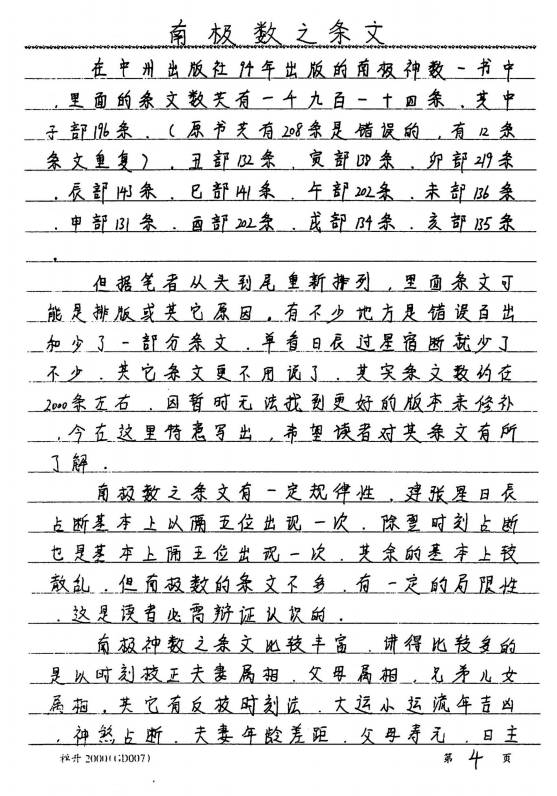 南极数之条文
在中州出版社94年出版的南极神数一书中
.里面的条文数共有一千九百一十四条.其中
子部196条.(原书共有208条是错误的.有12条
条文重复).丑部132条.寅部138条.卯部219条
.辰部143条.巳部141条.午部202条.未部136条
.申部131条.酉部202条.戌部134条.亥部135条
.
但据笔者从头到尾重新排列.里面条文可
能是排版或其它原因.有不少地方是错误百出
和少了一部分条文.单看日辰过星宿断就少了
不少.其它条文更不用说了.其实条文数约在
2000条左右.因暂时无法找到更好的版本来修补
.今在这里特意写出.希望读者对其条文有所
了解.
南极数之条文有一定规律性.建张星日辰
占断基本上以隔五位出现一次.除 时刻占断
也是基本上隔五位出现一次.其余的基本上较
散乱.但南极数的条文不多.有一定的局限性
.这是读者必需辩证认识的.
南极神数之条文比较丰富.讲得比较多的
是以时刻校正夫妻属相.父母属相.兄弟儿女
属相.其它有反校时刻法.大运小运流年吉凶
.神煞占断.夫妻年龄差距.父母寿元.日主
2000(GD007) 第 4 页